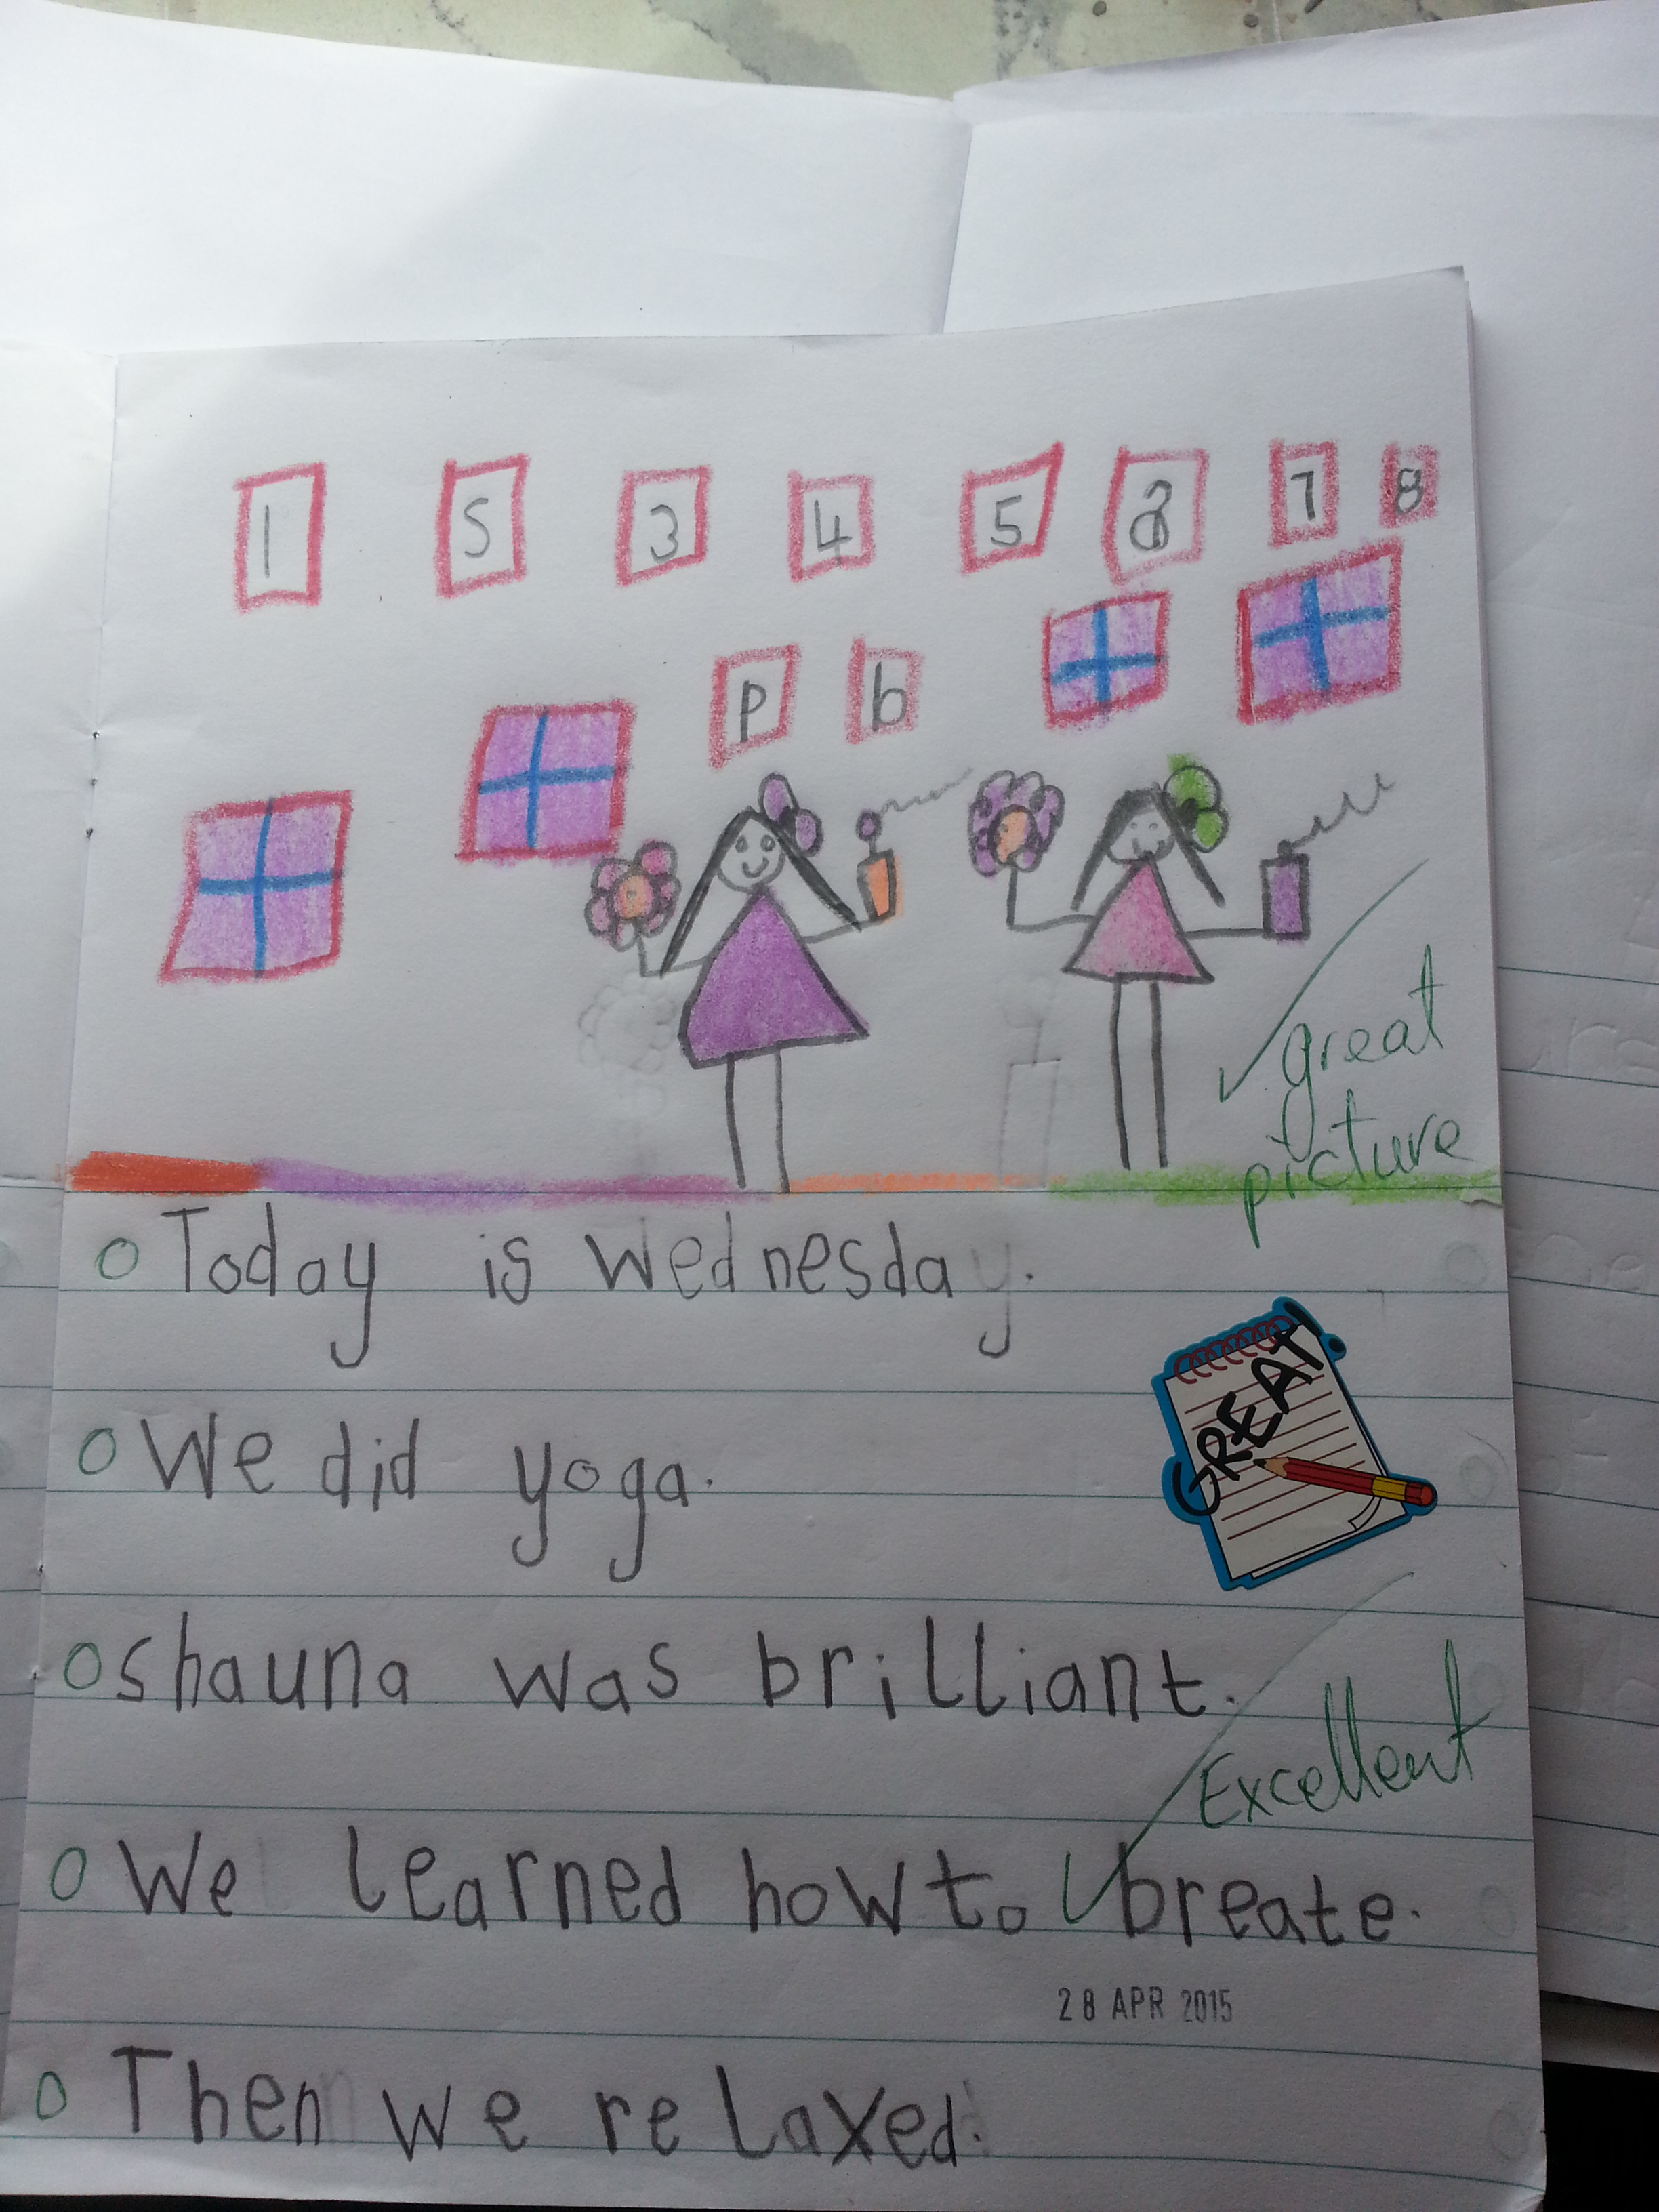 1 S 3 4 5 8 7 8
p b
great
picture
Today is Wednesday.
GREAT!
We did yoga.
shauna was brilliant.
Excellent
We learned how to breate.
28 APR 2015
Then we relaxed.